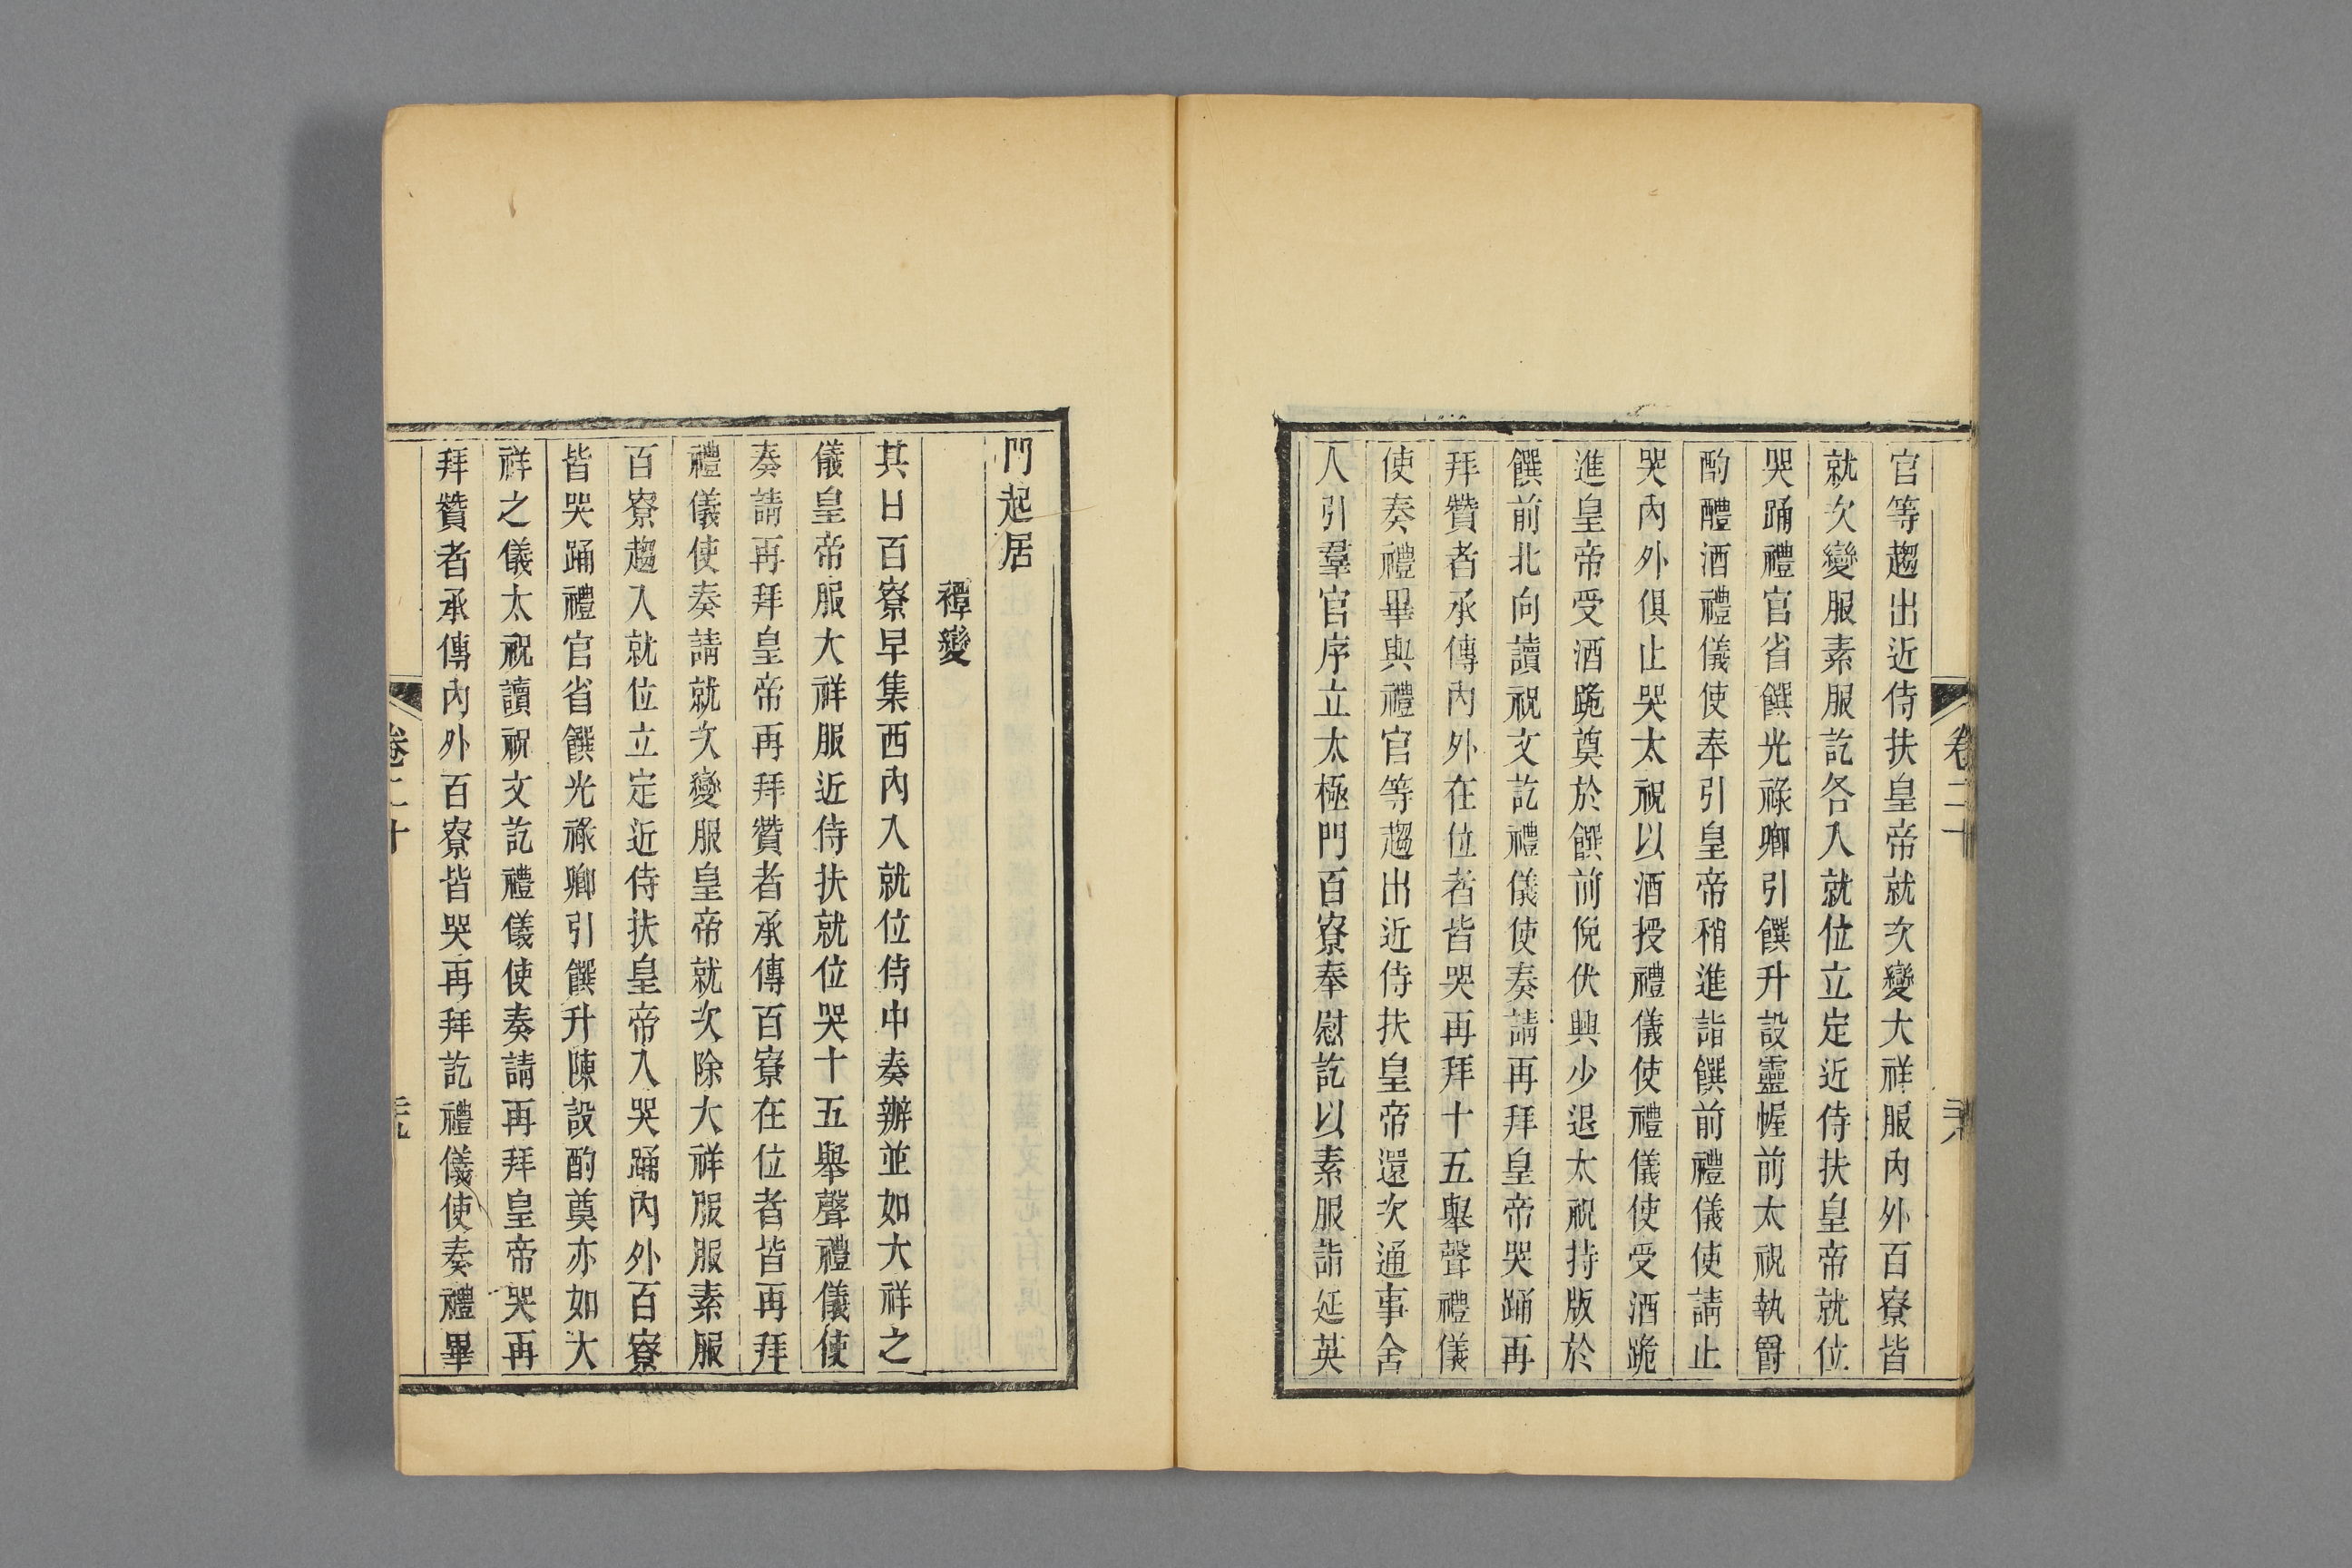 官等趨出近侍扶皇帝就次變大祥服內外百寮皆
就次變服素服訖各入就位立定近侍扶皇帝就位
哭踊禮官省饌光祿卿引饌升設靈幄前太祝執爵
酌醴酒禮儀使奉引皇帝稍進詣饌前禮儀使請止
哭內外俱止哭太祝以酒授禮儀使禮儀使受酒跪
進皇帝受酒跪奠於饌前俛伏興少退太祝持版於
饌前北向讀祝文訖禮儀使奏請再拜皇帝哭踊再
拜贊者承傳內外在位者皆哭再拜十五舉聲禮儀
使奏禮畢與禮官等趨出近侍扶皇帝還次通事舍
人引羣官序立太極門百寮奉慰訖以素服詣延英
門起居
禫變
其日百寮早集西內入就位侍中奏辦並如大祥之
儀皇帝服大祥服近侍扶就位哭十五舉聲禮儀使
奏請再拜皇帝再拜贊者承傳百寮在位者皆再拜
禮儀使奏請就次變服皇帝就次除大祥服服素服
百寮趨入就位立定近侍扶皇帝入哭踊內外百寮
皆哭踊禮官省饌光祿卿引饌升陳設酌奠亦如大
祥之儀太祝讀祝文訖禮儀使奏請再拜皇帝哭再
拜贊者承傳內外百寮皆哭再拜訖禮儀使奏禮畢
卷二十